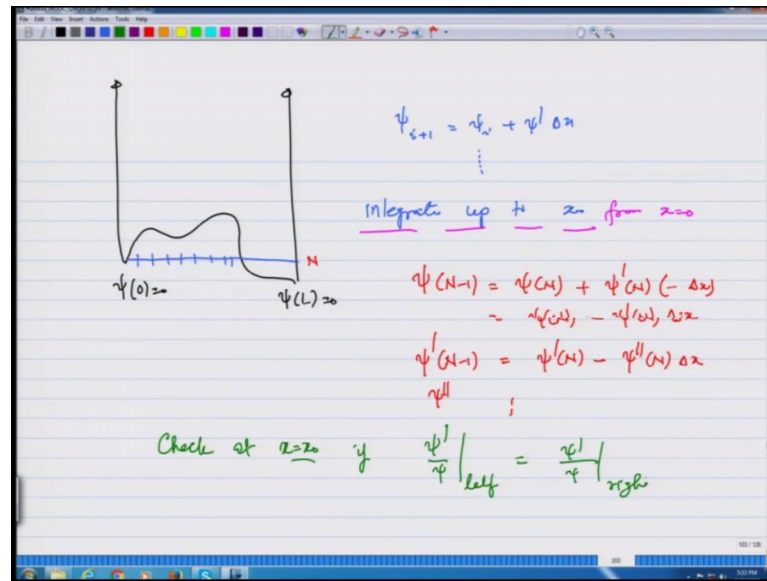 File Edit View Insert Actions Tools Help
ψ_{i+1} = ψ_i + ψ' Δx
⋮
Integrate up to x₀ from x=0
N
ψ(0)=0
ψ(L)=0
ψ(N-1) = ψ(N) + ψ'(N) (-Δx)
= ψ(N) - ψ'(N) Δx
ψ'(N-1) = ψ'(N) - ψ''(N) Δx
ψ'' ⋮
Check at x=x₀ if ψ'/ψ |left = ψ'/ψ |right
103 / 126
103
5:53 PM